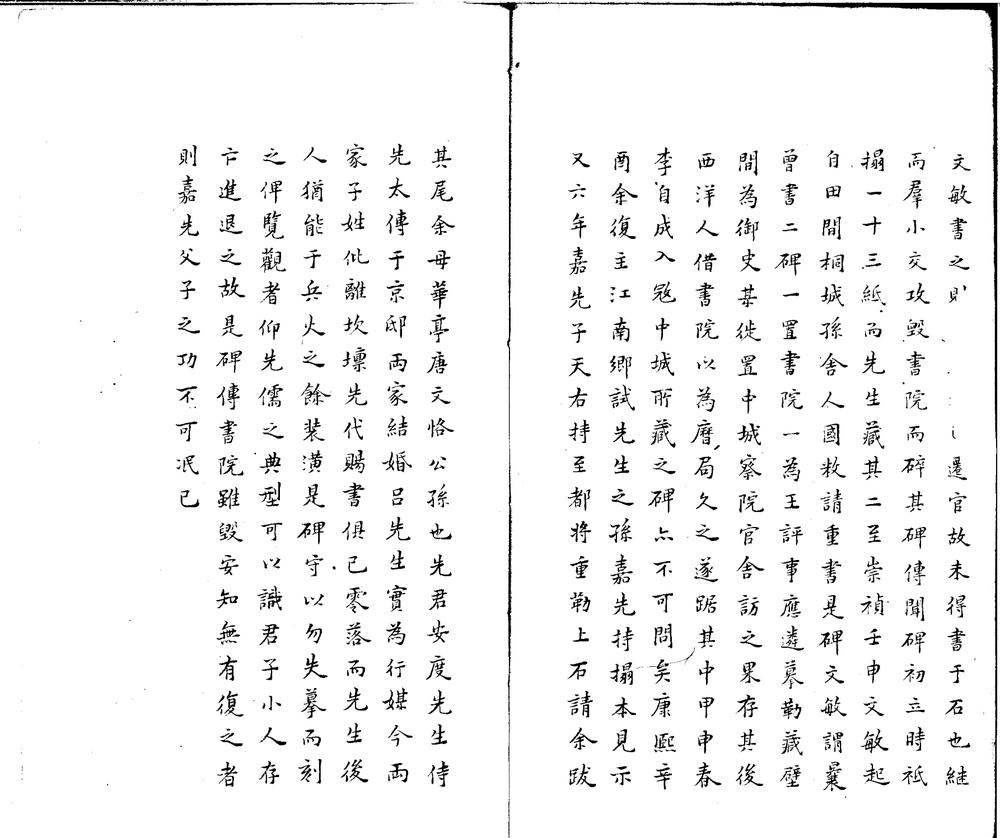 文敏書之則遷官故未得書于石也繼
而羣小交攻毀書院而碎其碑傳聞碑初立時祗
搨一十三紙而先生藏其二至崇禎壬申文敏起
自田間桐城孫舍人國敉請重書是碑文敏謂曩
曾書二碑一置書院一為王評事應遴摹勒藏壁
間為御史某徙置中城察院官舍訪之果存其後
西洋人借書院以為曆局久之遂踞其中甲申春
李自成入寇中城所藏之碑亦不可問矣康熙辛
酉余復主江南鄉試先生之孫嘉先持搨本見示
又六年嘉先子天右持至都將重勒上石請余跋
其尾余母華亭唐文恪公孫也先君安度先生侍
先太傅于京邸兩家結婚呂先生實為行媒今兩
家子姓仳離坎壈先代賜書俱已零落而先生後
人猶能于兵火之餘裝潢是碑守以勿失摹而刻
之俾覽觀者仰先儒之典型可以識君子小人存
亡進退之故是碑傳書院雖毀安知無有復之者
則嘉先父子之功不可泯已